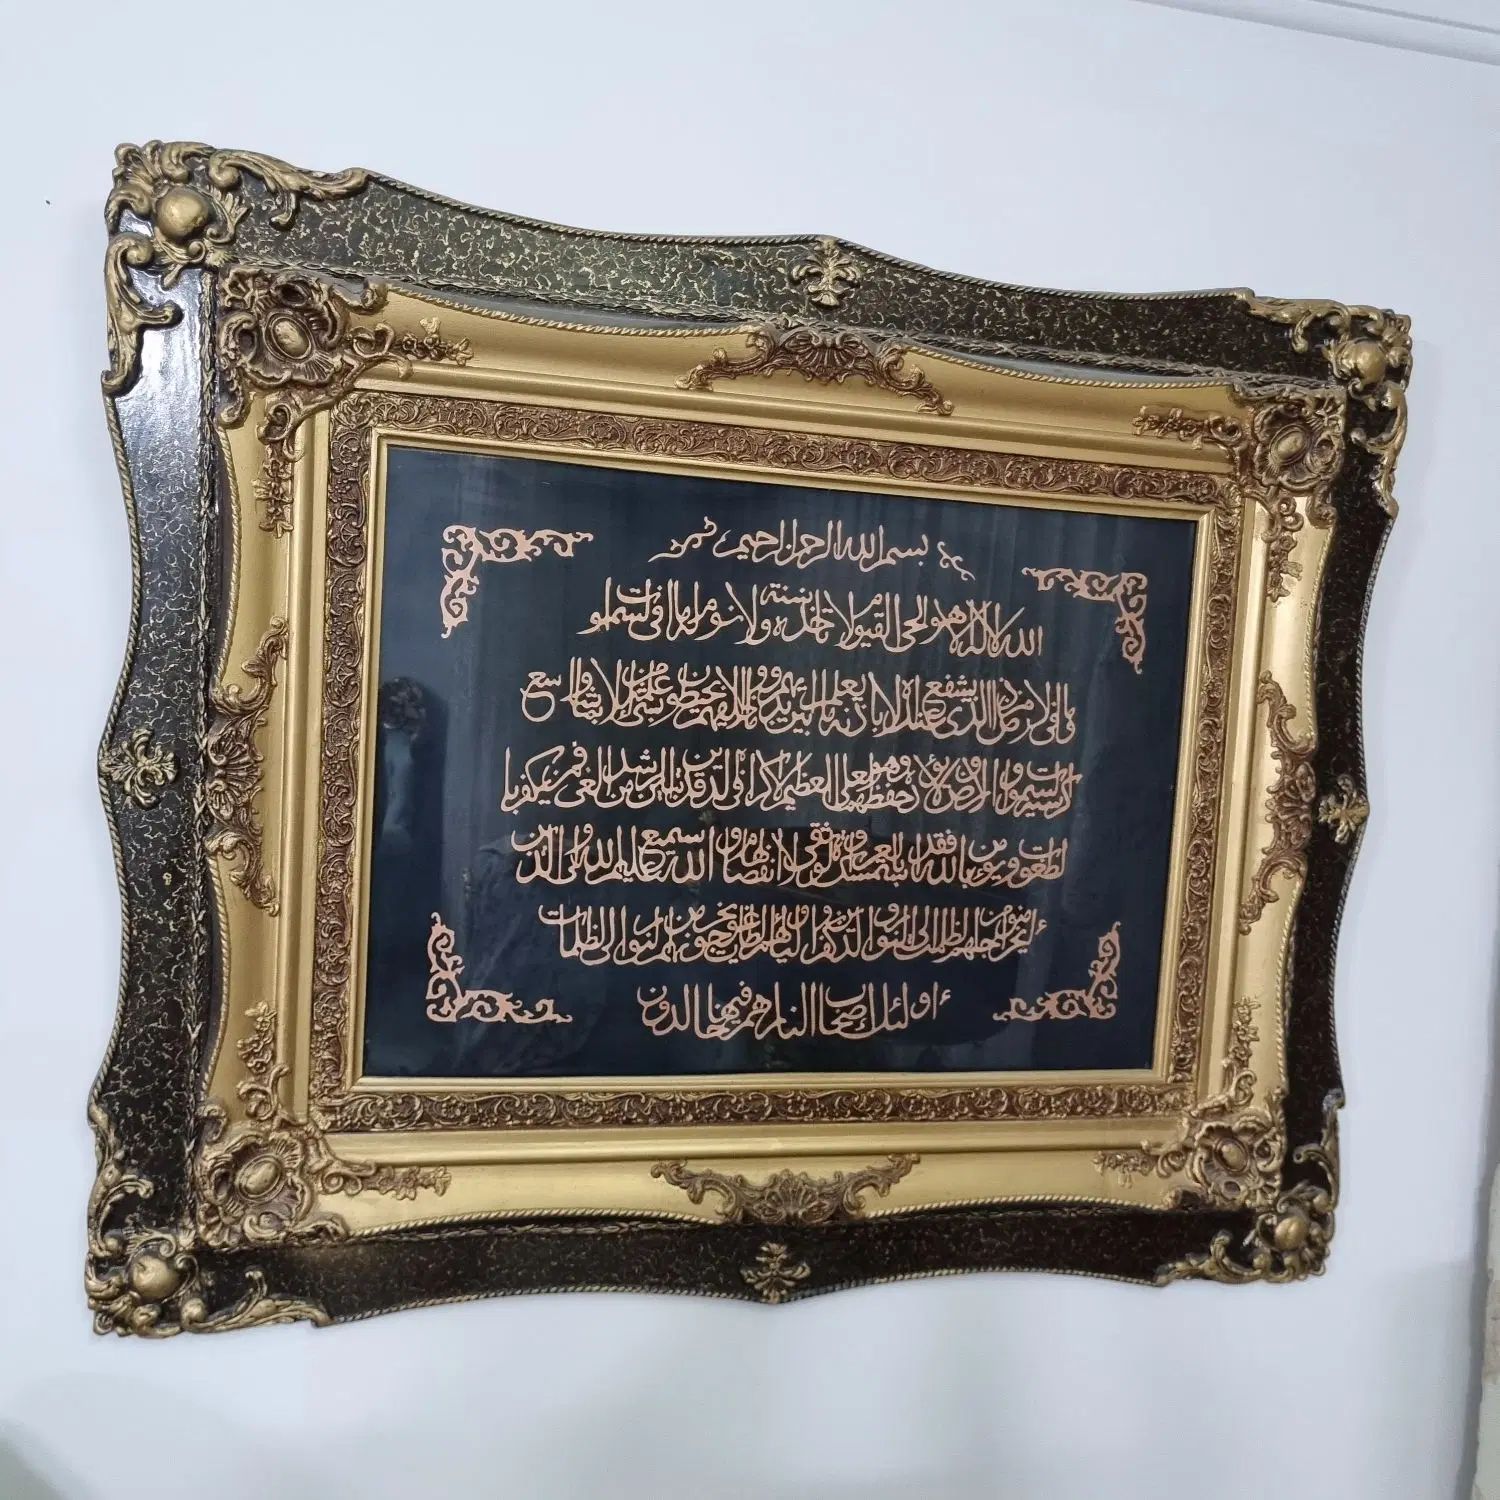 بسم الله الرحمن الرحيم
الله لا اله الا هو الحي القيوم لا تاخذه سنة ولا نوم له ما في السموا
ت وما في الارض من ذا الذي يشفع عنده الا باذنه يعلم ما بين ايديهم وما خلفهم ولا يحيطون بشئ من علمه الا بما شاء وسع
كرسيه السموات والارض ولا يؤده حفظهما وهو العلي العظيم لا اكراه في الدين قد تبين الرشد من الغي فمن يكفر با
لطغوت ويؤمن بالله فقد استمسك بالعروة الوثقى لا انفصام لها والله سميع عليم الله ولي الذين
ءامنوا يخرجهم من الظلمات الى النور والذين كفروا اولياؤهم الطاغوت يخرجونهم من النور الى الظلمات
اولئك اصحاب النار هم فيها خالدون